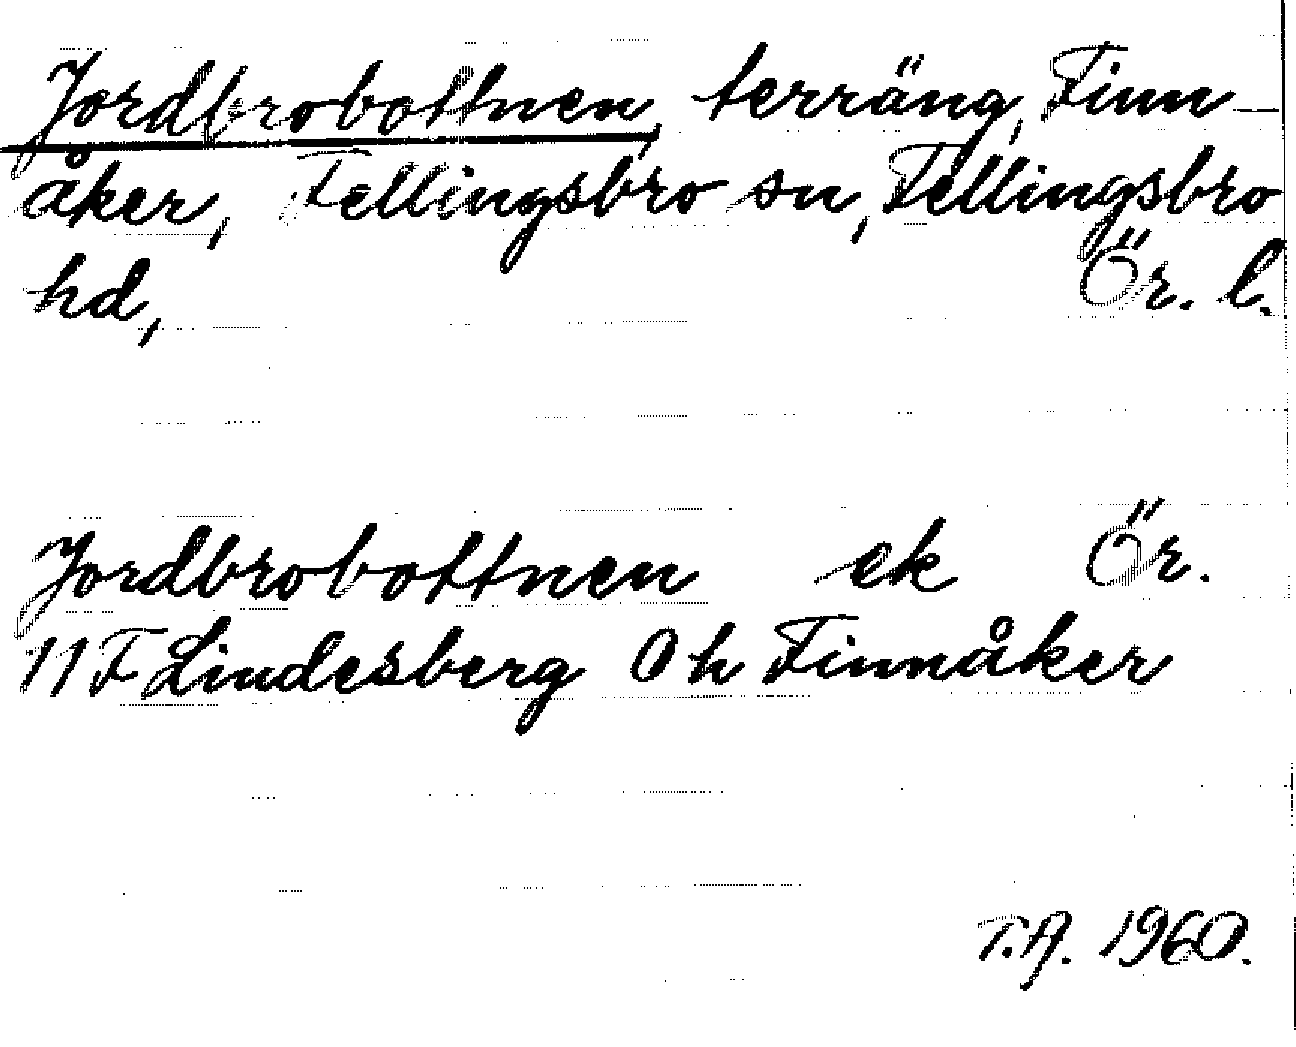 Jordbrobottnen, terräng, Finn-
åker, Fellingsbro sn, Fellingsbro
hd, Ör. l.
Jordbrobottnen ek Ör.
11 F Lindesberg 0 h Finnåker
T.A. 1960.